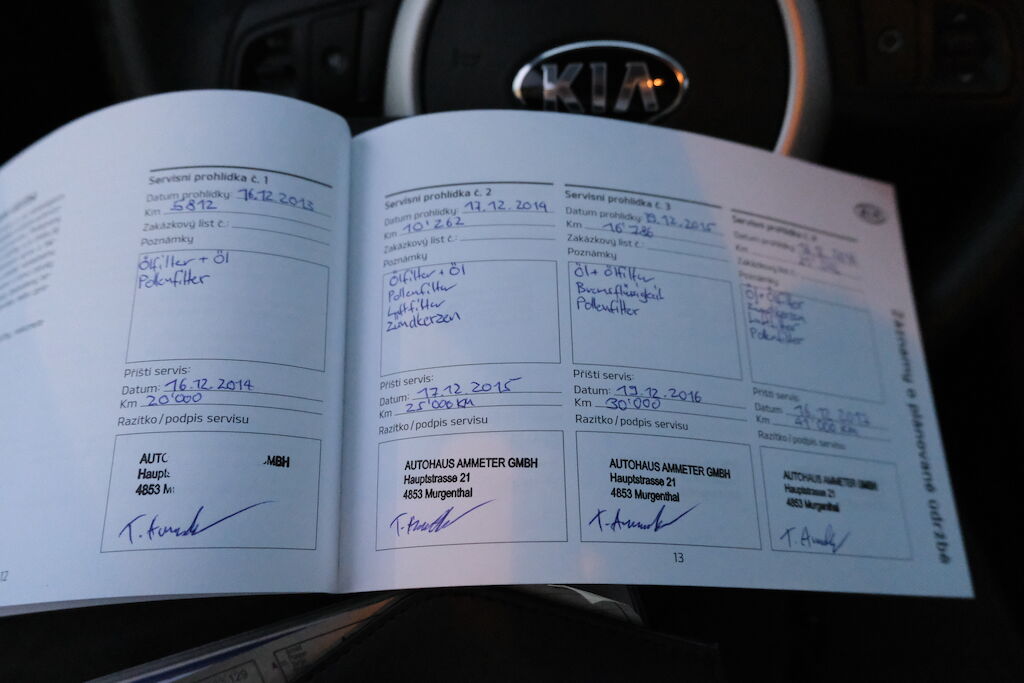 KIA
Servisní prohlídka č. 1
Datum prohlídky: 16.12.2013
Km 5812
Zakázkový list č.:
Poznámky
Ölfilter + Öl
Pollenfilter
Příští servis:
Datum: 16.12.2014
Km 20'000
Razítko/podpis servisu
AUTO MBH
Haupt
4853 M
12
Servisní prohlídka č. 2
Datum prohlídky: 17.12.2014
Km 10'262
Zakázkový list č.:
Poznámky
Ölfilter + Öl
Pollenfilter
Luftfilter
Zündkerzen
Příští servis:
Datum: 17.12.2015
Km 25'000 KM
Razítko/podpis servisu
AUTOHAUS AMMETER GMBH
Hauptstrasse 21
4853 Murgenthal
Servisní prohlídka č. 3
Datum prohlídky: 19.12.2015
Km 16'786
Zakázkový list č.:
Poznámky
Öl + Ölfilter
Bremsflüssigkeit
Pollenfilter
Příští servis:
Datum: 19.12.2016
Km 30'000
Razítko/podpis servisu
AUTOHAUS AMMETER GMBH
Hauptstrasse 21
4853 Murgenthal
13
Servisní prohlídka č. 4
Datum prohlídky:
Km
Zakázkový list č.:
Poznámky
Öl + Ölfilter
Zündkerzen
Luftfilter
Pollenfilter
Příští servis:
Datum: 16.12.2017
Km 41'000 KM
Razítko/podpis servisu
AUTOHAUS AMMETER GMBH
Hauptstrasse 21
4853 Murgenthal
Záznamy o plánované údržbě